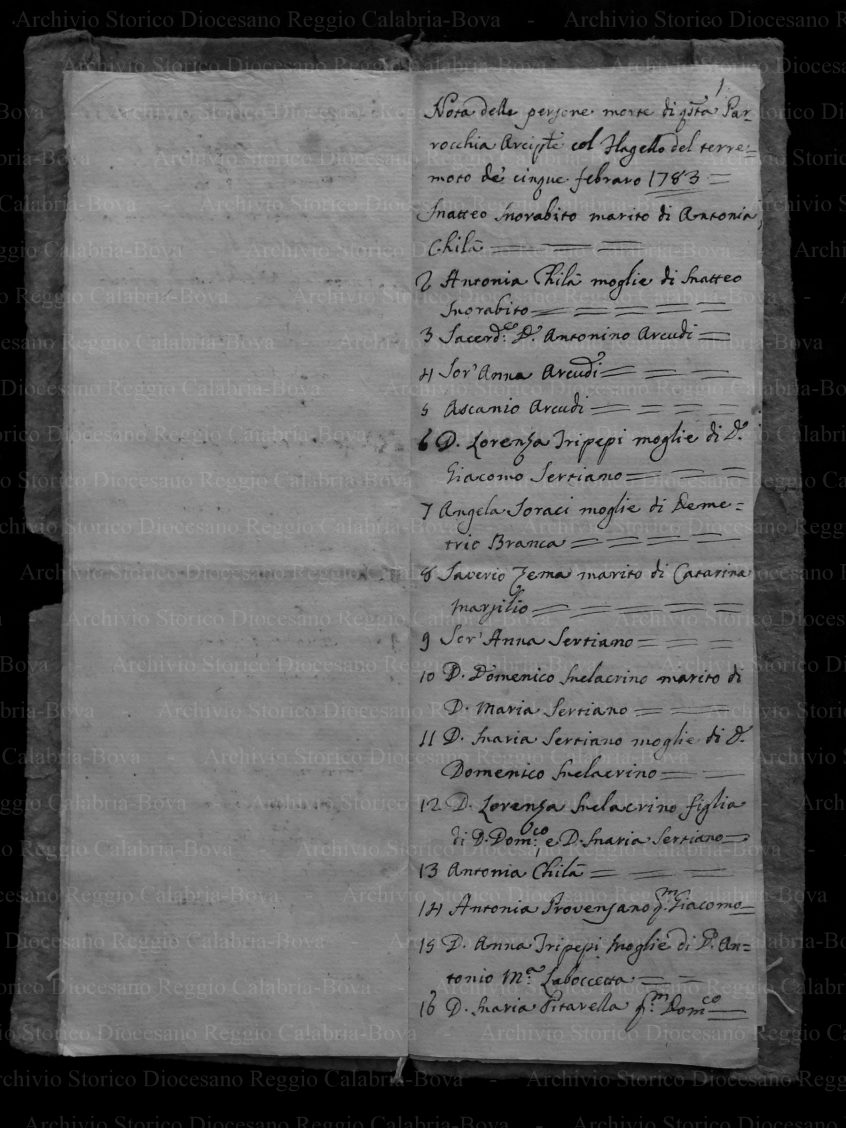 1
Nota delle persone morte di q.sta Par=
rocchia Arcip.le col Flagello del terre=
moto de' cinque febraro 1783
Matteo Morabito marito di Antonia
Chilà
2 Antonia Chilà moglie di Matteo
Morabito
3 Sacerd.e D. Antonino Arcudi
4 Sor' Anna Arcudi
5 Ascanio Arcudi
6 D. Lorenza Tripepi moglie di D.
Giacomo Sertiano
7 Angela Soraci moglie di Deme=
trio Branca
8 Saverio Zema marito di Catarina
Marsilio
9 Sor' Anna Sertiano
10 D. Domenico Melacrino marito di
D. Maria Sertiano
11 D. Maria Sertiano moglie di D.
Domenico Melacrino
12 D. Lorenza Melacrino figlia
di D. Dom:co, e D. Maria Sertiano
13 Antonia Chilà
14 Antonia Provenzano q.m Giacomo
15 D. Anna Tripepi moglie di D. An=
tonio M.a Laboccetta
16 D. Maria Pitarella q.m Dom.co
Archivio Storico Diocesano Reggio Calabria-Bova